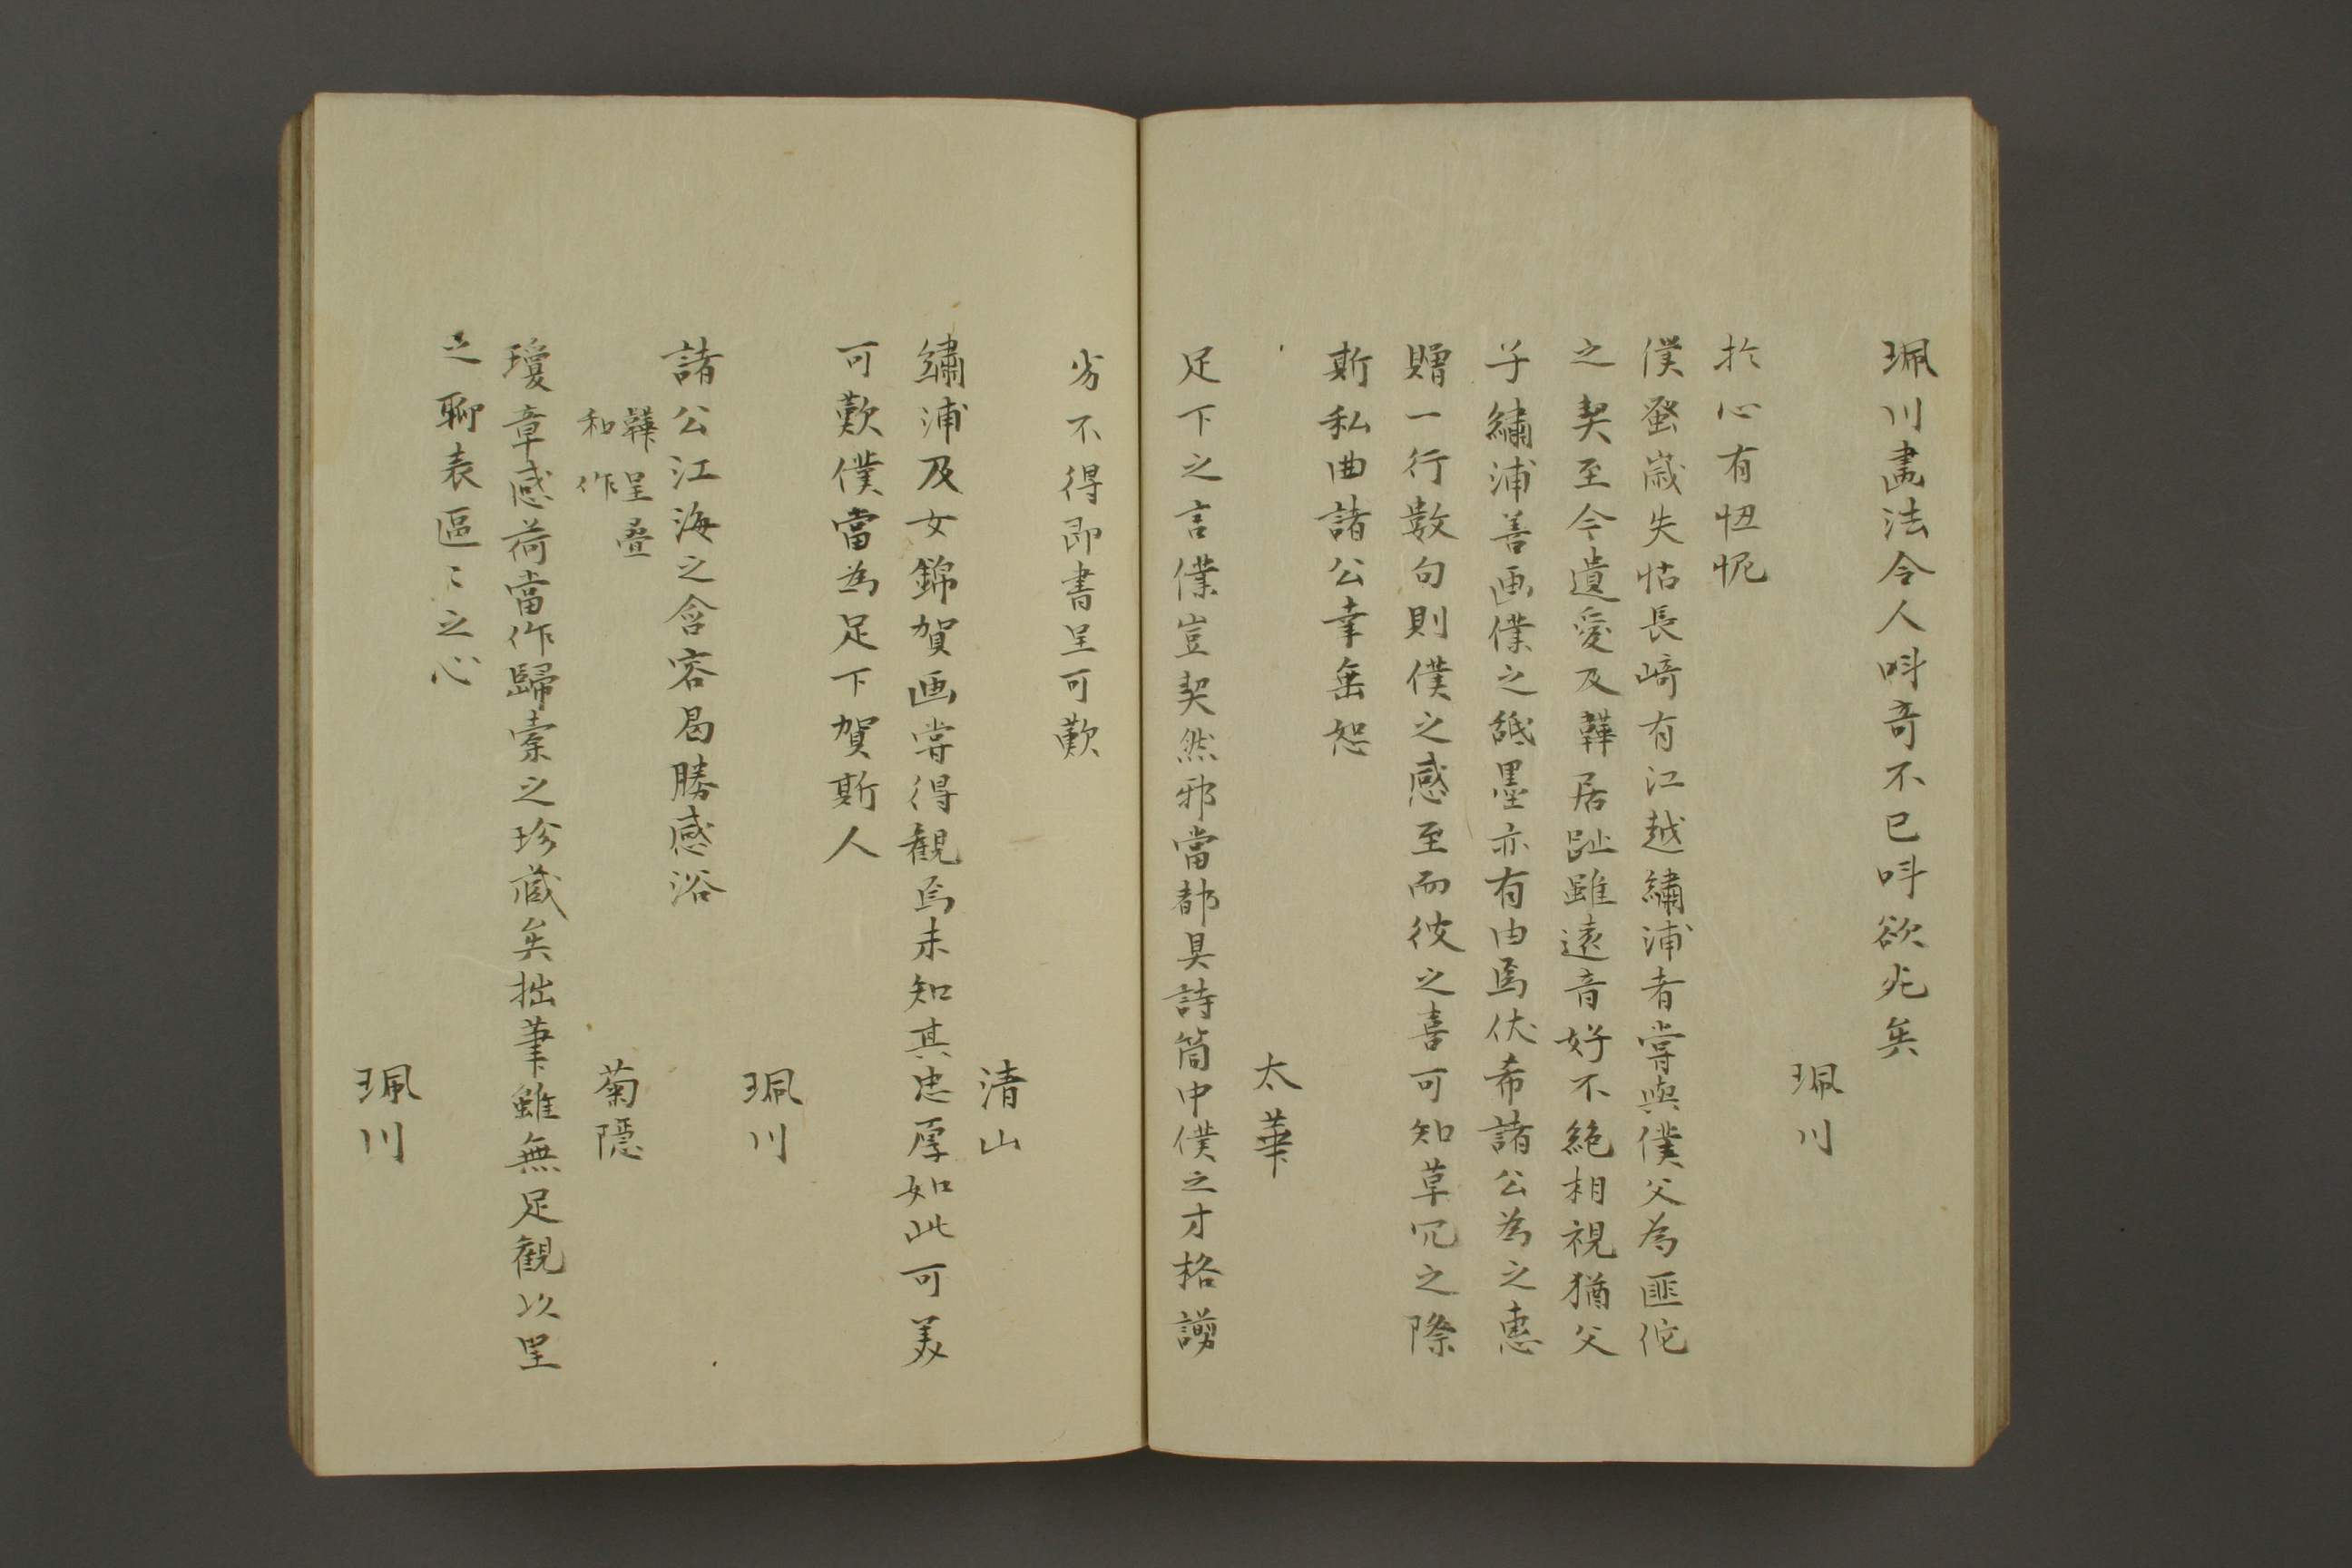 珮川畵法令人呌奇不已呌欲死矣
珮川
扵心有忸怩
僕蚤歲失怙長﨑有江越繡浦者嘗與僕父為匪佗
之契至今遺愛及韡居趾雖遠音好不絶相視猶父
子繡浦善画僕之䑛墨亦有由焉伏希諸公為之惠
贈一行數句則僕之感至而彼之喜可知草冗之際
斯私曲諸公幸垂恕
太華
足下之言僕豈契然邪當都具詩筒中僕之才格謭
劣不得即書呈可歎
清山
繡浦及女錦賀画嘗得観焉未知其忠厚如此可美
可歎僕當為足下賀斯人
珮川
諸公江海之含容曷勝感浴
韡呈疊
和作
菊隱
瓊章感荷當作歸橐之珍藏矣拙筆雖無足観以呈
之聊表區〻之心
珮川